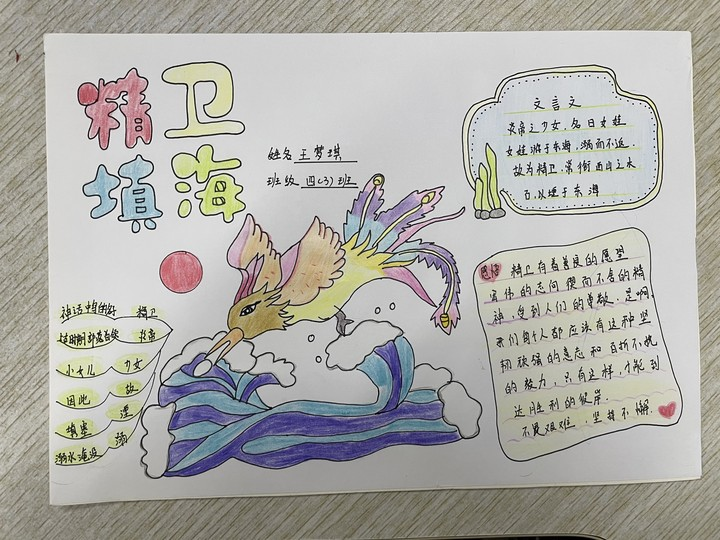 精卫
填海
姓名 王梦琪
班级 四(3)班
文言文
炎帝之少女,名曰女娃
女娃游于东海,溺而不返,
故为精卫,常衔西山之木
石,以堙于东海
神话中的鸟 精卫
炎帝
小女儿 少女
因此 故
填塞 堙
溺水淹没 溺
感悟 精卫有着善良的愿望
宏伟的志向 锲而不舍的精
神,受到人们的尊敬,是啊,
我们每个人都应该有这种坚
韧顽强的意志和百折不挠
的毅力,只有这样,才能到
达胜利的彼岸.
不畏艰难,坚持不懈.